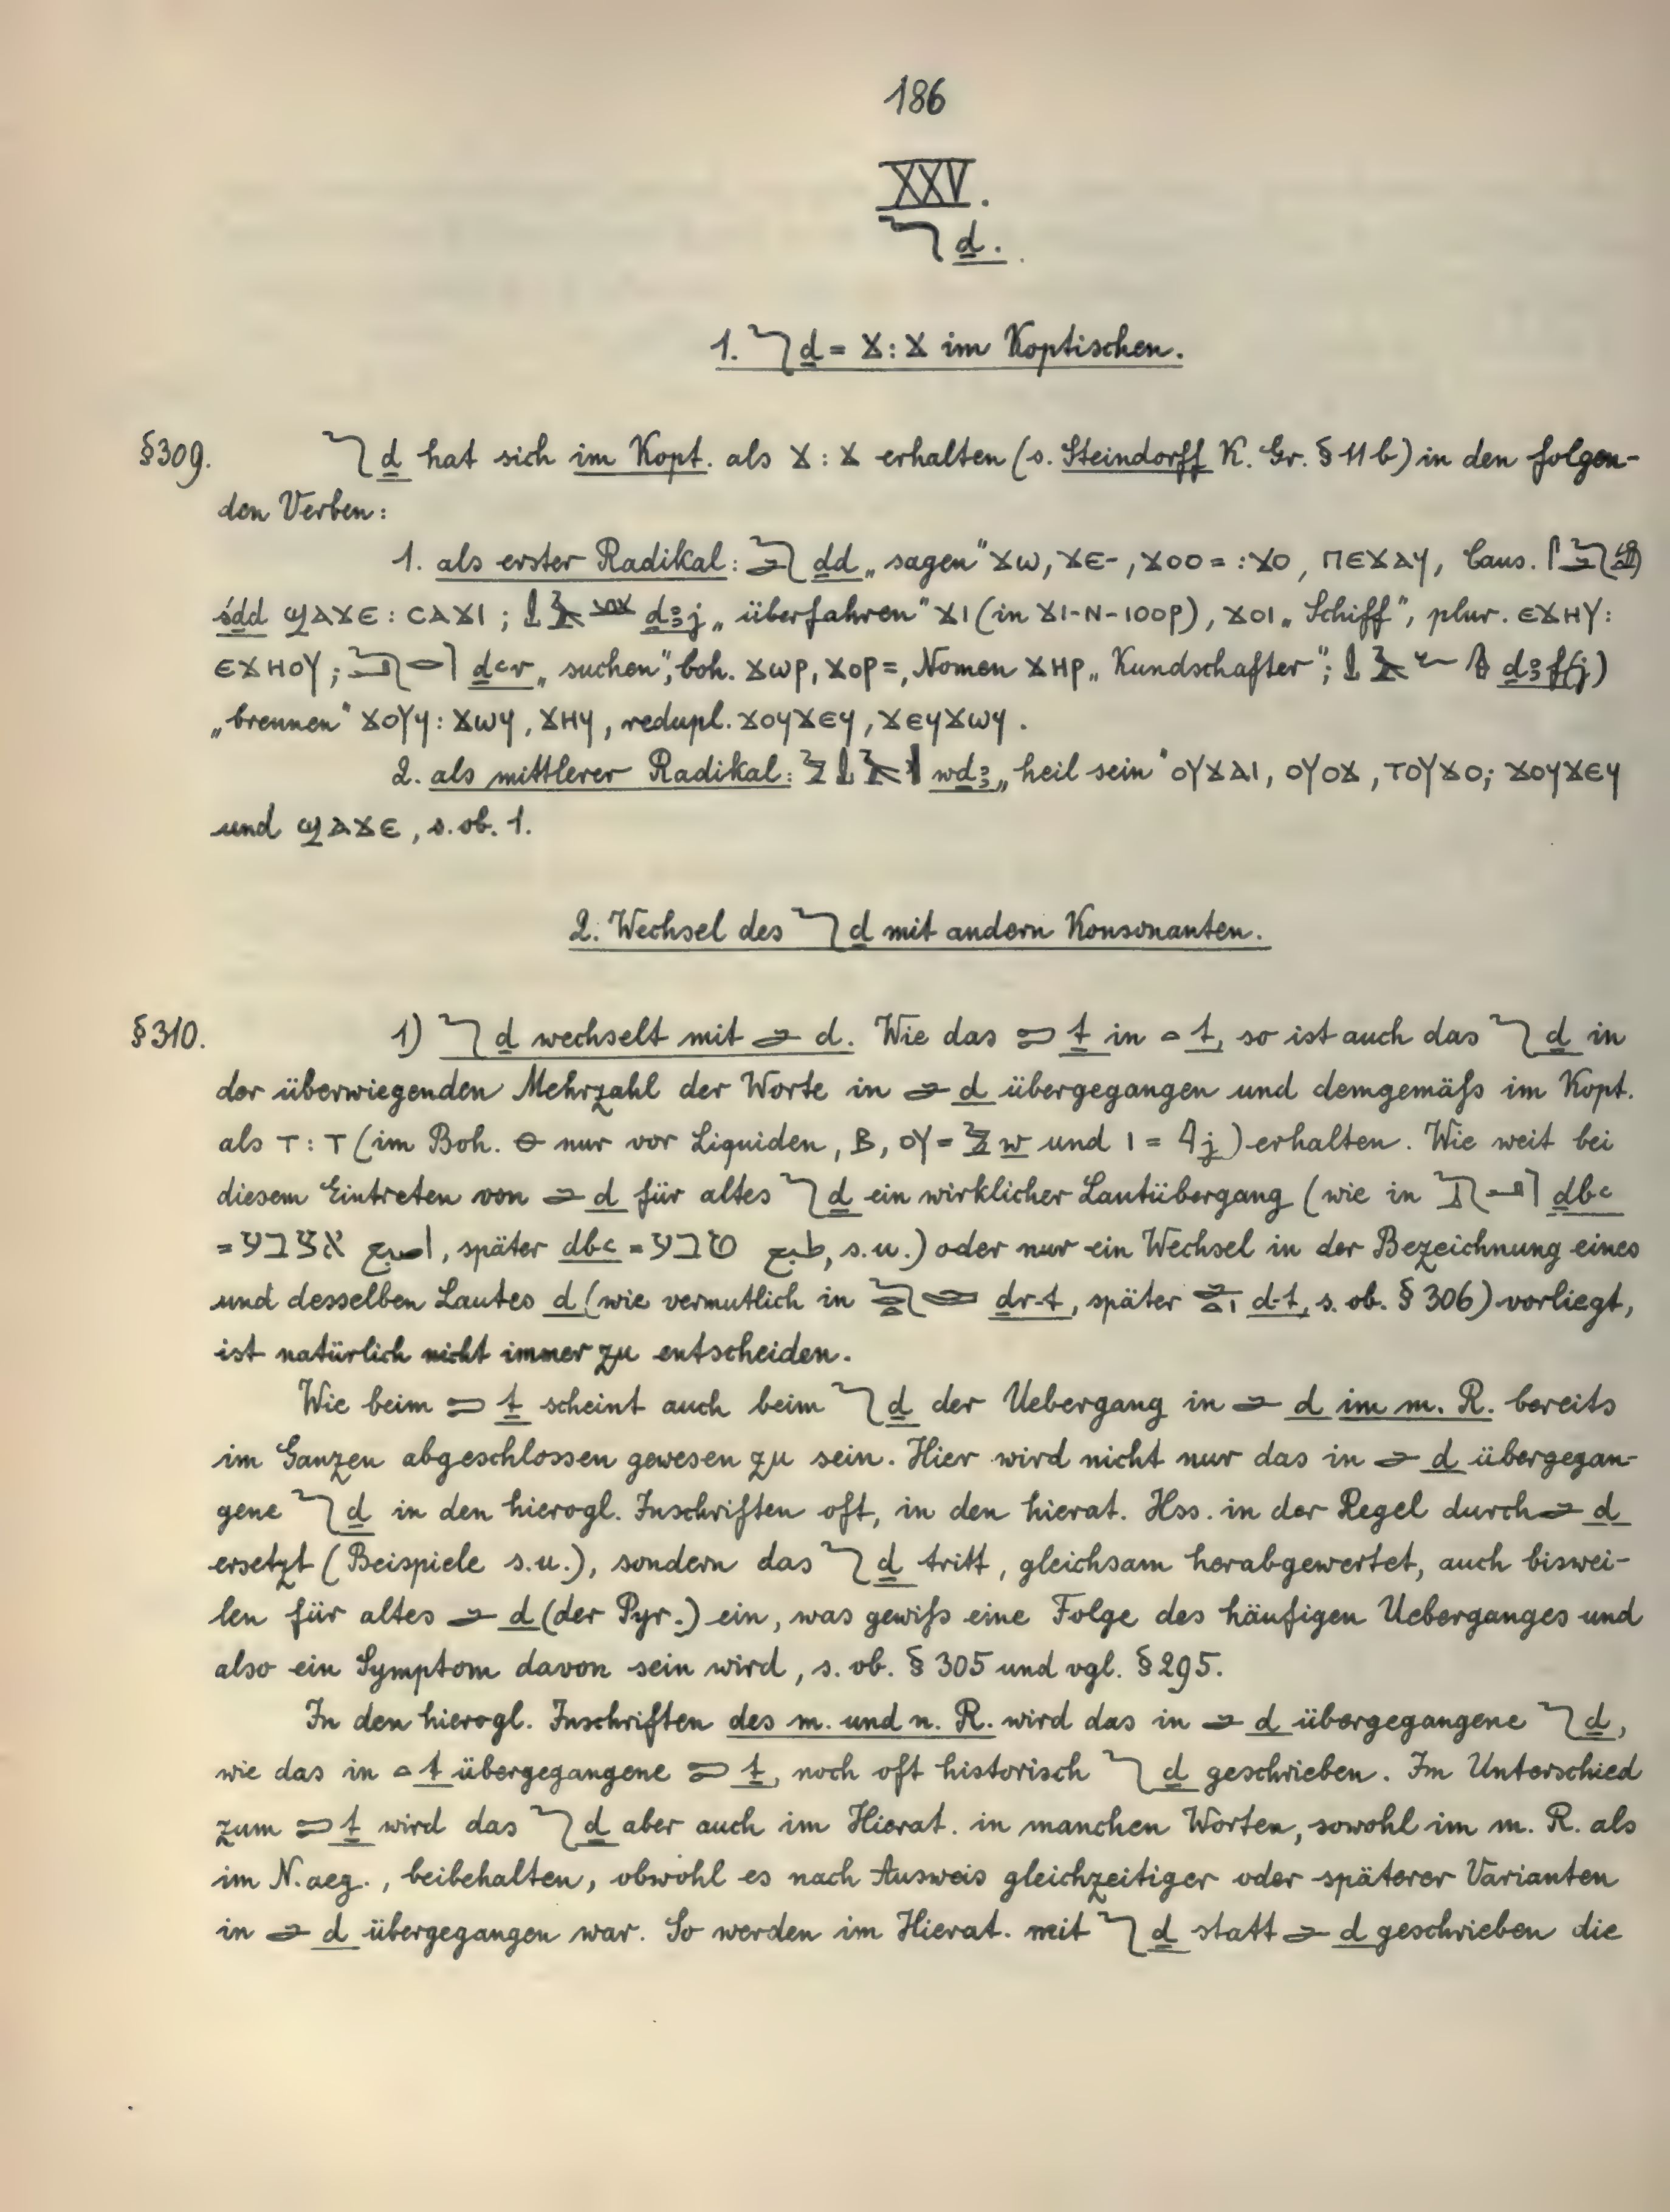 186
XXV.
𓆓 ḏ.
1. 𓆓 ḏ = ϫ : ϫ im Koptischen.
§309. 𓆓 ḏ hat sich im Kopt. als ϫ : ϫ erhalten (s. Steindorff K. Gr. § 11 b) in den folgen-
den Verben:
1. als erster Radikal: 𓆓𓂧 ḏd „sagen" ϫⲱ, ϫⲉ-, ϫⲟⲟ= : ϫⲟ, ⲡⲉϫⲁϥ, Caus. 𓋴𓆓𓂧𓀁
śḏd ϣⲁϫⲉ : ⲥⲁϫⲓ; 𓍑𓄿 ḏꜣj „überfahren" ϫⲓ (in ϫⲓ-ⲛ-ⲓⲟⲟⲣ), ϫⲟⲓ „Schiff", plur. ⲉϫⲏⲩ :
ⲉϫⲏⲟⲩ; 𓆓𓂝𓂋 ḏꜥr „suchen", boh. ϫⲱⲣ, ϫⲟⲣ=, Nomen ϫⲏⲣ „Kundschafter"; 𓍑𓄿𓆑𓊮 ḏꜣf(j)
„brennen" ϫⲟⲩϥ : ϫⲱϥ, ϫⲏϥ, redupl. ϫⲟϥϫⲉϥ, ϫⲉϥϫⲱϥ.
2. als mittlerer Radikal: 𓅱𓍑𓄿𓏛 wḏꜣ „heil sein" ⲟⲩϫⲁⲓ, ⲟⲩⲟϫ, ⲧⲟⲩϫⲟ; ϫⲟϥϫⲉϥ
und ϣⲁϫⲉ, s. ob. 1.
2. Wechsel des 𓆓 ḏ mit andern Konsonanten.
§310. 1) 𓆓 ḏ wechselt mit 𓂧 d. Wie das 𓍿 ṯ in 𓏏 t, so ist auch das 𓆓 ḏ in
der überwiegenden Mehrzahl der Worte in 𓂧 d übergegangen und demgemäß im Kopt.
als ⲧ : ⲧ (im Boh. ⲑ nur vor Liquiden, ⲃ, ⲟⲩ = 𓅱 w und ⲓ = 𓇋 j) erhalten. Wie weit bei
diesem Eintreten von 𓂧 d für altes 𓆓 ḏ ein wirklicher Lautübergang (wie in 𓆓𓃀𓂝 ḏbꜥ
= אצבע اصبع, später dbꜥ = טבע طبع, s.u.) oder nur ein Wechsel in der Bezeichnung eines
und desselben Lautes d (wie vermutlich in 𓆓𓂋𓏏𓂧 ḏr-t, später 𓂧𓏏𓏤 d-t, s. ob. § 306) vorliegt,
ist natürlich nicht immer zu entscheiden.
Wie beim 𓍿 ṯ scheint auch beim 𓆓 ḏ der Uebergang in 𓂧 d im m. R. bereits
im Ganzen abgeschlossen gewesen zu sein. Hier wird nicht nur das in 𓂧 d übergegan-
gene 𓆓 ḏ in den hierogl. Inschriften oft, in den hierat. Hss. in der Regel durch 𓂧 d
ersetzt (Beispiele s.u.), sondern das 𓆓 ḏ tritt, gleichsam herabgewertet, auch biswei-
len für altes 𓂧 d (der Pyr.) ein, was gewiß eine Folge des häufigen Ueberganges und
also ein Symptom davon sein wird, s. ob. § 305 und vgl. § 295.
In den hierogl. Inschriften des m. und n. R. wird das in 𓂧 d übergegangene 𓆓 ḏ,
wie das in 𓏏 t übergegangene 𓍿 ṯ, noch oft historisch 𓆓 ḏ geschrieben. Im Unterschied
zum 𓍿 ṯ wird das 𓆓 ḏ aber auch im Hierat. in manchen Worten, sowohl im m. R. als
im N. aeg., beibehalten, obwohl es nach Ausweis gleichzeitiger oder späterer Varianten
in 𓂧 d übergegangen war. So werden im Hierat. mit 𓆓 ḏ statt 𓂧 d geschrieben die